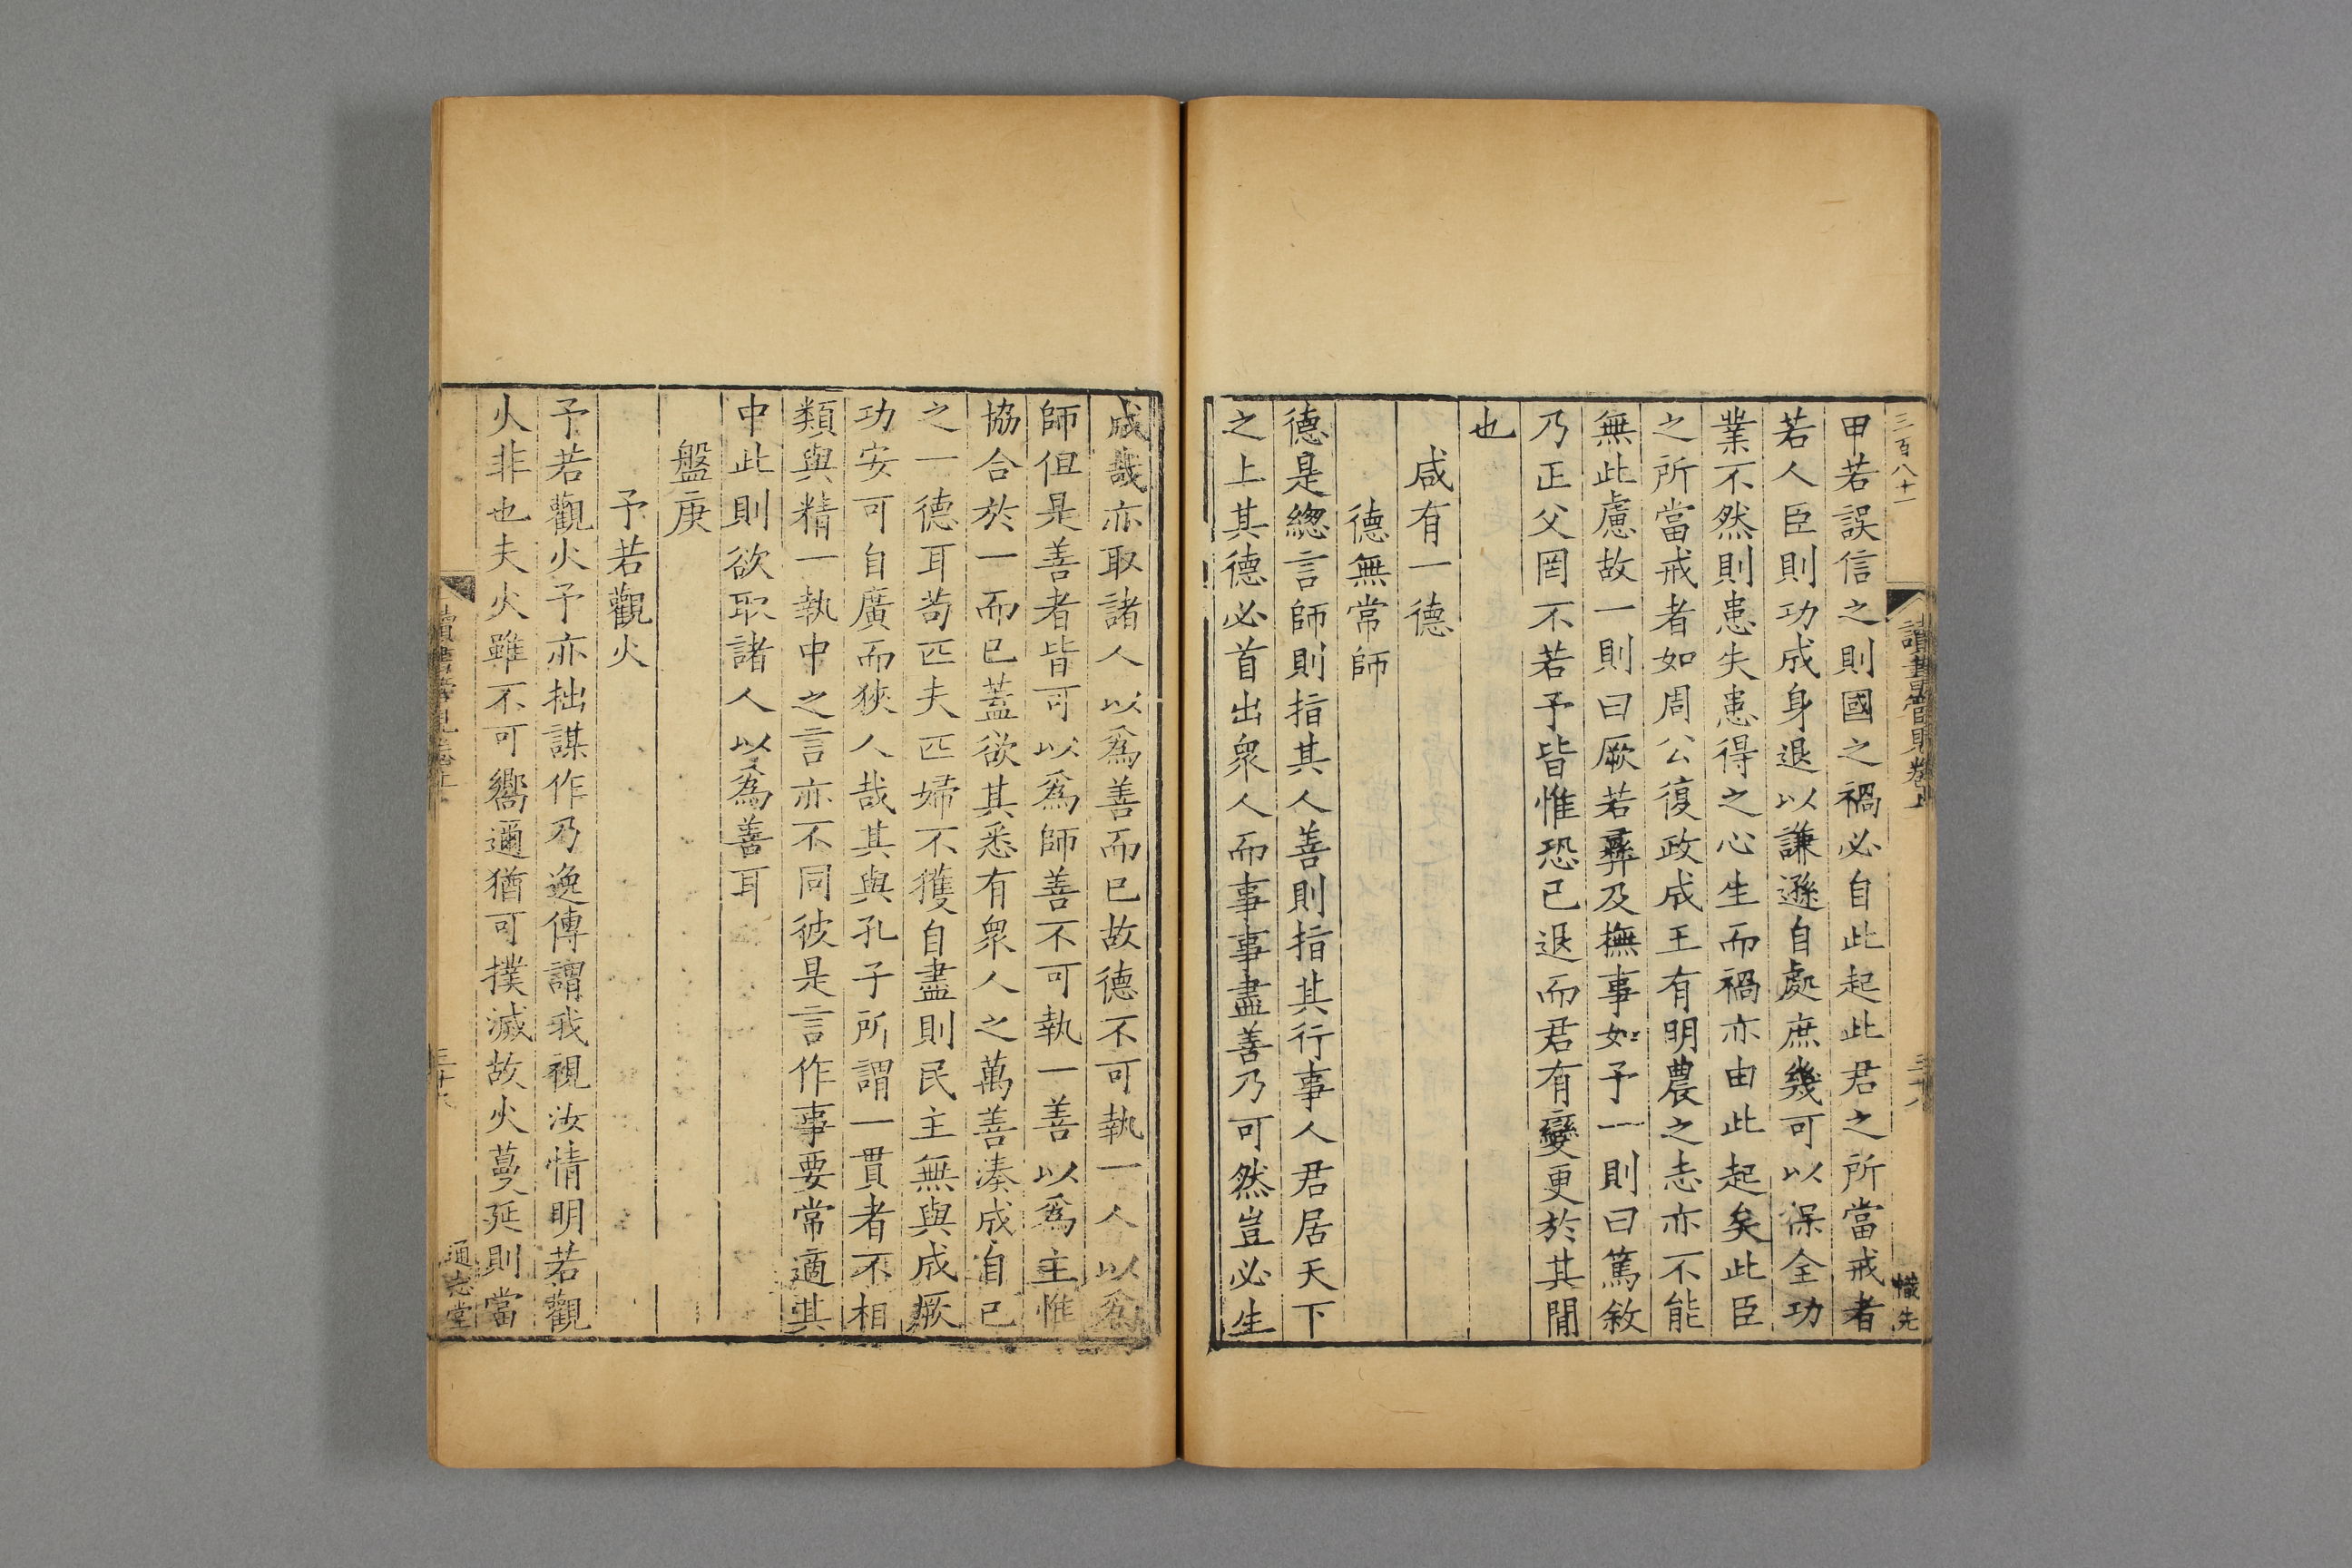 三百八十一
讀書管見卷上
三十八
幟先
甲若誤信之則國之禍必自此起此君之所當戒者
若人臣則功成身退以謙遜自處庶幾可以保全功
業不然則患失患得之心生而禍亦由此起矣此臣
之所當戒者如周公復政成王有明農之志亦不能
無此慮故一則曰厥若彞及撫事如予一則曰篤敘
乃正父罔不若予皆惟恐已退而君有變更於其間
也
咸有一德
德無常師
德是緫言師則指其人善則指其行事人君居天下
之上其德必首出衆人而事事盡善乃可然豈必生
成哉亦取諸人以爲善而已故德不可執一人以爲
師但是善者皆可以爲師善不可執一善以爲主惟
協合於一而已蓋欲其悉有衆人之萬善湊成自己
之一德耳苟匹夫匹婦不獲自盡則民主無與成厥
功安可自廣而狹人哉其與孔子所謂一貫者不相
類與精一執中之言亦不同彼是言作事要常適其
中此則欲取諸人以爲善耳
盤庚
予若觀火
予若觀火予亦拙謀作乃逸傳謂我視汝情明若觀
火非也夫火雖不可嚮邇猶可撲滅故火蔓延則當
通志堂